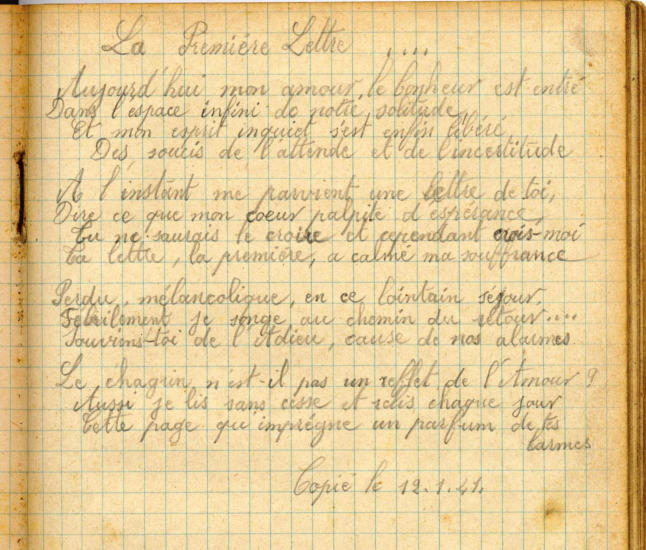 La Premiére Lettre ....
Aujourd'hui mon amour, le bonheur est entré
Dans l'espace infini de notre solitude,
Et mon esprit inquiet s'est enfin libéré
Des soucis de l'attende et de l'incestitude
A l'instant me parvient une lettre de toi,
Dire ce que mon coeur palpite d'espérance,
Tu ne saurais le croire et cependant crois-moi
Ta lettre, la première, a calmé ma souffrance
Perdu, mélancolique, en ce lointain séjour,
Febrilement je songe au chemin du retour....
Souviens-toi de l'Adieu, cause de nos alarmes.
Le chagrin n'est-il pas un reflet de l'Amour ?
Aussi je lis sans cesse et relis chaque jour
Cette page qu'imprégne un parfum de tes
larmes
Copié le 12.1.41.